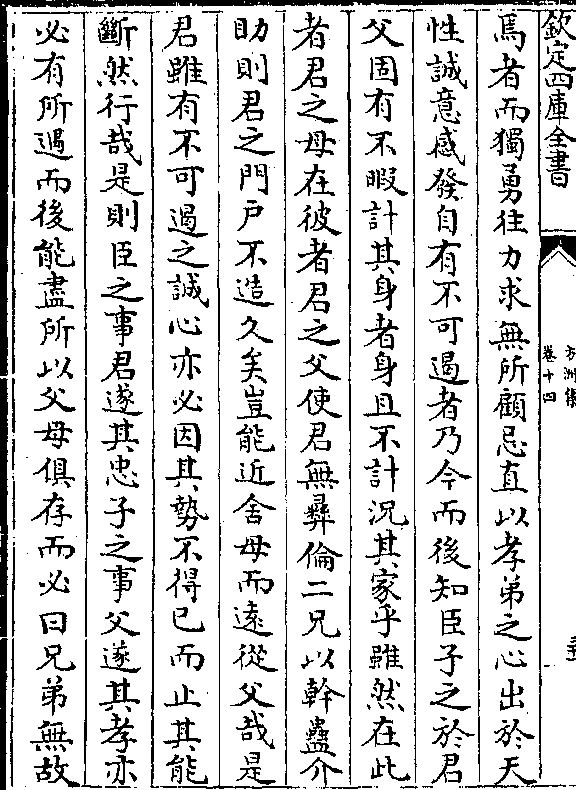 欽定四庫全書
卷十四
焉者而獨勇往力求無所顧忌直以孝弟之心出於天
性誠意感發自有不可遏者乃今而後知臣子之於君
父固有不暇計其身者身且不計況其家乎雖然在此
者君之母在彼者君之父使君無彛倫二兄以幹蠱介
助則君之門戸不造久矣豈能近舍母而遠從父哉是
君雖有不可遏之誠心亦必因其勢不得已而止其能
斷然行哉是則臣之事君遂其忠子之事父遂其孝亦
必有所遇而後能盡所以父母俱存而必曰兄弟無故